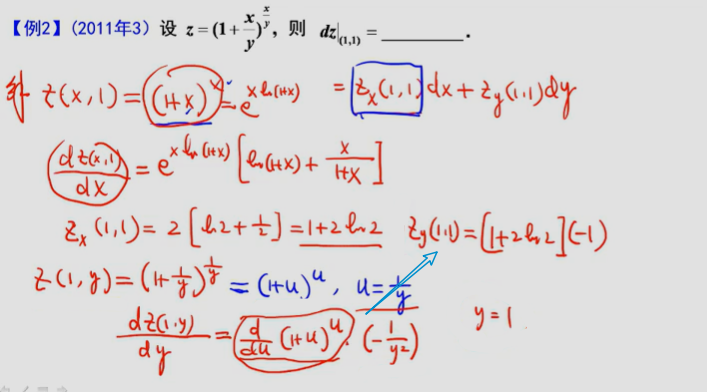 【例2】(2011年3) 设 z=(1+x/y)^(x/y), 则 dz|(1,1) = ________.
解 z(x,1)=(1+x)^x=e^(x ln(1+x)) = z_x(1,1)dx+z_y(1,1)dy
dz(x,1)/dx = e^(x ln(1+x)) [ln(1+x)+x/(1+x)]
z_x(1,1)=2[ln2+1/2]=1+2ln2 z_y(1,1)=[1+2ln2](-1)
z(1,y)=(1+1/y)^(1/y)=(1+u)^u, u=1/y
dz(1,y)/dy=d/du(1+u)^u·(-1/y²) y=1